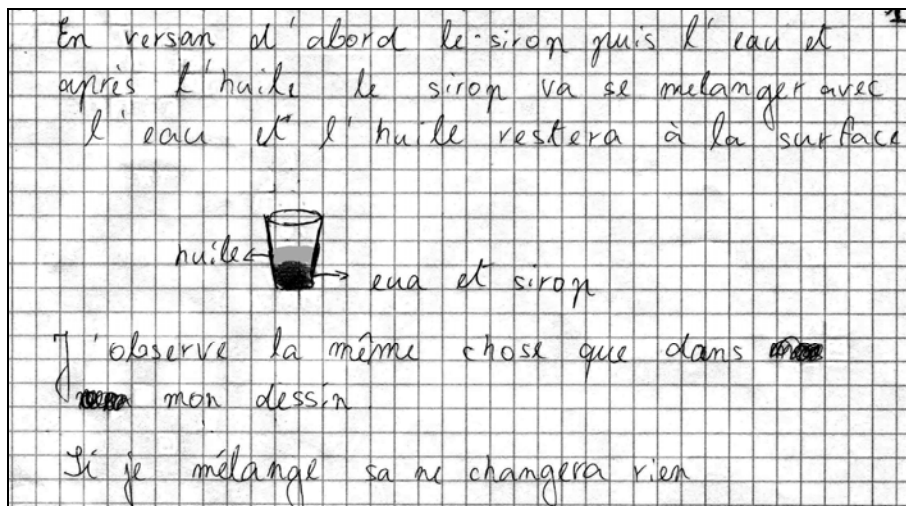 En versan d'abord le sirop puis l'eau et
après l'huile le sirop va se melanger avec
l'eau et l'huile restera à la surface
huile
eua et sirop
J'observe la même chose que dans
mon dessin.
Si je mélange sa ne changera rien